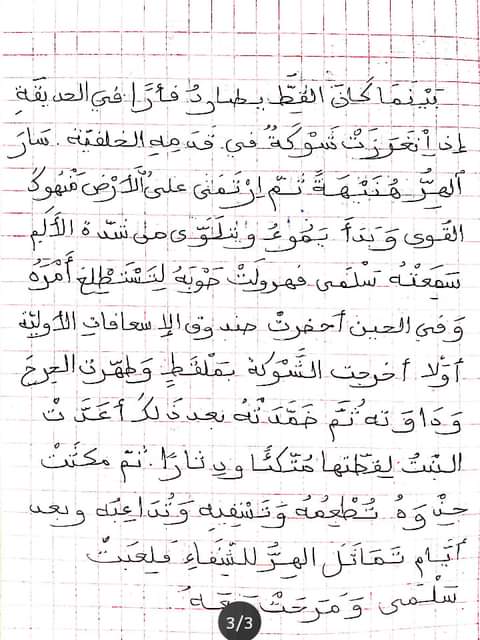 بَيْنَمَا كَانَ القِطُّ يطارد فأرًا في الحديقَةِ
إذ اِنْغَرَزَتْ شَوْكَةٌ في قدمِهِ الخلفيّة . سَارَ
الهِرُّ هُنَيْهَةً ثمّ اِرْتَمَى على الْأَرْضِ مَنْهُوكَ
القوى وَ بَدَأَ يَمُوءُ و يتلَوَّى من شدّة الأَلَمِ
سَمِعَتْهُ سَلْمَى فهرولَتْ صَوْبَهُ لِتَسْتَطْلِعَ أَمْرَهُ
وَ في الحين أحضرتْ صندوق الإسعافات الأوليّة
أوّلا أخرجت الشَّوْكة بِمْلقَطٍ وَ طهّرت الجرحَ
وَ دَاوَته ثُمَّ ضَمَّدَتْهُ بعد ذَلكَ أعَدَّتْ
البنْتُ لِقطّتها مُتَّكئًا و دِثارًا . ثمّ مكثَتْ
حِذْوَهُ تُطْعِمُهُ وَ تَسْقِيهِ وَ تُدَاعِبُه و بعد
أيّام تَمَاثَلَ الهِرُّ للشِّفَاءِ فلعبَتْ
سَلْمَى وَ مَرَحَتْ مَعَهُ
3/3